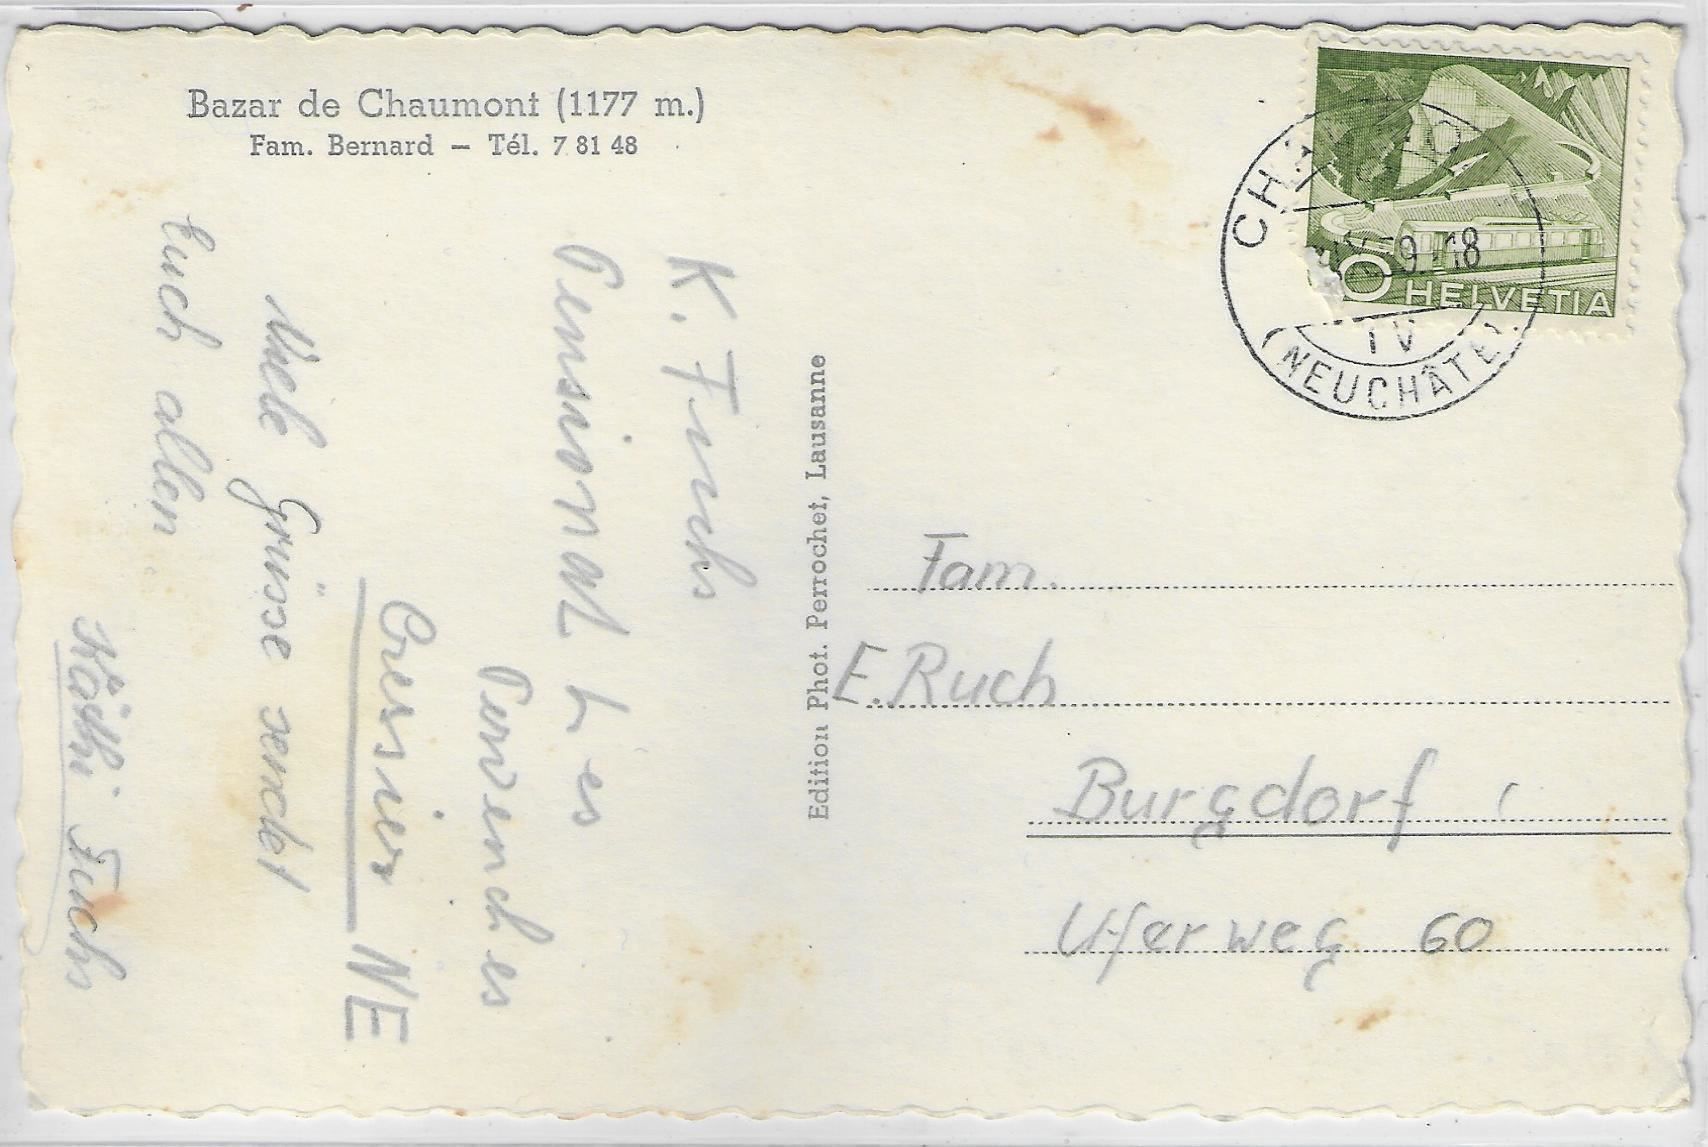 Bazar de Chaumont (1177 m.)
Fam. Bernard – Tél. 7 81 48
K. Fuchs
Pensionat Les
Pervenches
Cressier NE
Viele Grüsse
Euch allen
Käthi Fuchs
Edition Phot. Perrochet, Lausanne
HELVETIA
IV
(NEUCHÂTEL)
Fam.
E. Ruch
Burgdorf
Uferweg 60